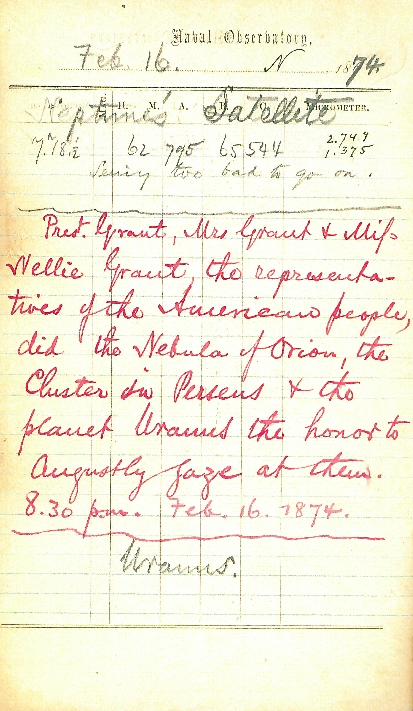 Naval Observatory,
Feb. 16. N 1874
H. M. A. MICROMETER.
Neptune's Satellite
62 795 65 544 2.749
1.375
Seeing too bad to go on.
Prest. Grant, Mrs Grant & Miss
Nellie Grant, the representa-
tives of the American people,
did the Nebula of Orion, the
Cluster in Perseus & the
planet Uranus the honor to
Augustly gaze at them.
8.30 p.m. Feb. 16. 1874.
Uranus.